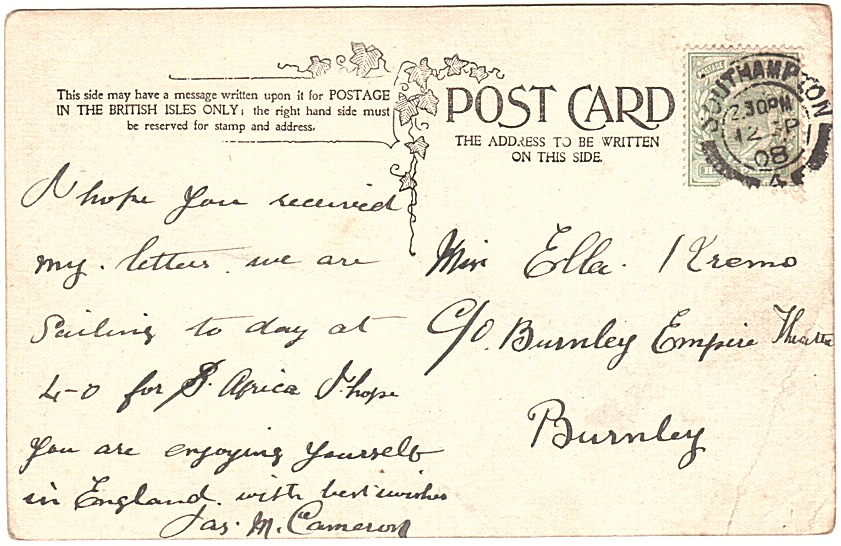 This side may have a message written upon it for POSTAGE
IN THE BRITISH ISLES ONLY; the right hand side must
be reserved for stamp and address.
POST CARD
THE ADDRESS TO BE WRITTEN
ON THIS SIDE.
POSTAGE
SOUTHAMPTON
2.30PM
12 SP
08
I hope you received
my. letters. we are
Sailing to day at
4-0 for S. Africa I hope
you are enjoying yourself
in England. with best wishes
Jas. M. Cameron
Miss Ella. Kremo
C/o. Burnley Empire Theatre
Burnley